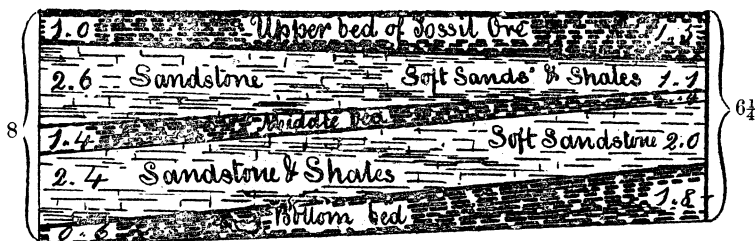 1.0 Upper bed of Fossil Ore
2.6 Sandstone Soft Sands° & Shales 1.1
1.4 Middle bed
8 6¼
Soft Sandstone 2.0
2.4 Sandstone & Shales
1.8
0.6 Bottom bed